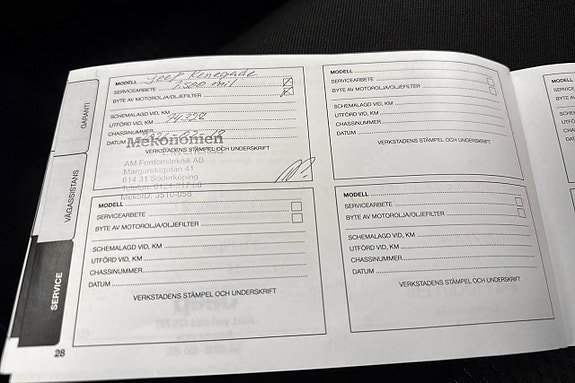 MODELL Jeep Renegade
SERVICEARBETE 1500 mil
BYTE AV MOTOROLJA/OLJEFILTER
SCHEMALAGD VID, KM
UTFÖRD VID, KM 14.329
CHASSINUMMER
DATUM
Mekonomen
VERKSTADENS STÄMPEL OCH UNDERSKRIFT
AM Fordonsteknik AB
Margaretagatan 41
614 31 Söderköping
MODELL
SERVICEARBETE
BYTE AV MOTOROLJA/OLJEFILTER
SCHEMALAGD VID, KM
UTFÖRD VID, KM
CHASSINUMMER
DATUM
VERKSTADENS STÄMPEL OCH UNDERSKRIFT
MODELL
SERVICEARBETE
BYTE AV MOTOROLJA/OLJEFILTER
SCHEMALAGD VID, KM
UTFÖRD VID, KM
CHASSINUMMER
DATUM
VERKSTADENS STÄMPEL OCH UNDERSKRIFT
MODELL
SERVICEARBETE
BYTE AV MOTOROLJA/OLJEFILTER
SCHEMALAGD VID, KM
UTFÖRD VID, KM
CHASSINUMMER
DATUM
VERKSTADENS STÄMPEL OCH UNDERSKRIFT
GARANTI
VÄGASSISTANS
SERVICE
28